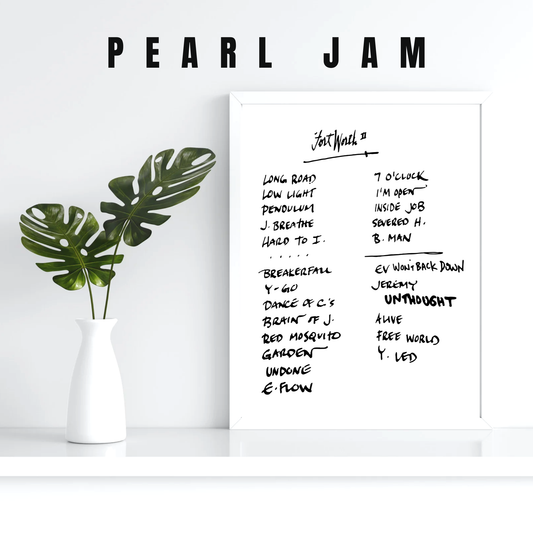 PEARL JAM
Fort Worth II
LONG ROAD
LOW LIGHT
PENDULUM
J. BREATHE
HARD TO I.
. . . . .
BREAKERFALL
Y-GO
DANCE OF C.'S
BRAIN OF J.
RED MOSQUITO
GARDEN
UNDONE
E. FLOW
7 O'CLOCK
I'M OPEN
INSIDE JOB
SEVERED H.
B. MAN
EV WON'T BACK DOWN
JEREMY
UNTHOUGHT
ALIVE
FREE WORLD
Y. LED